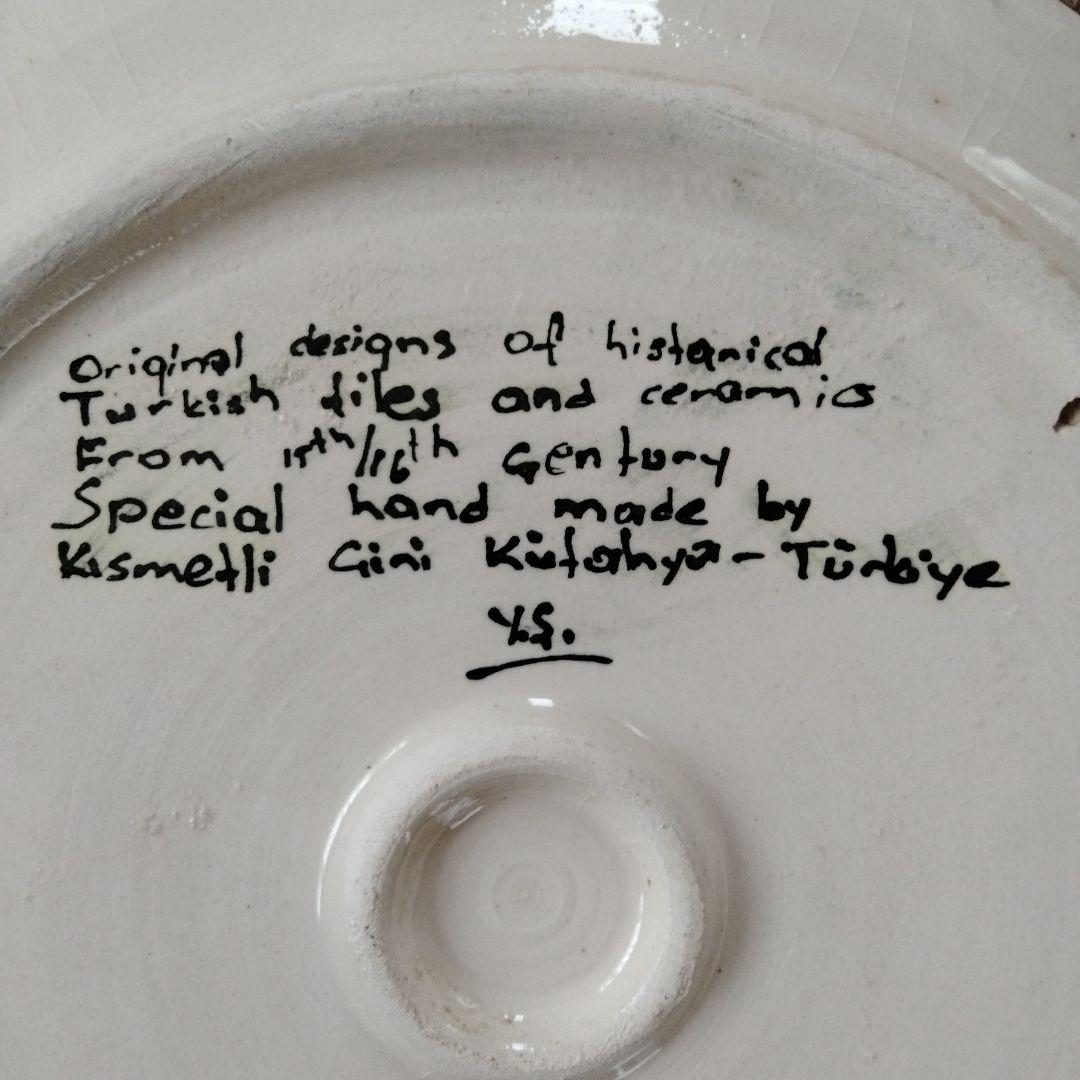 Original designs of historical
Turkish tiles and ceramics
From 15th/16th Century
Special hand made by
Kısmetli Çini Kütahya-Türkiye
Y.Ş.